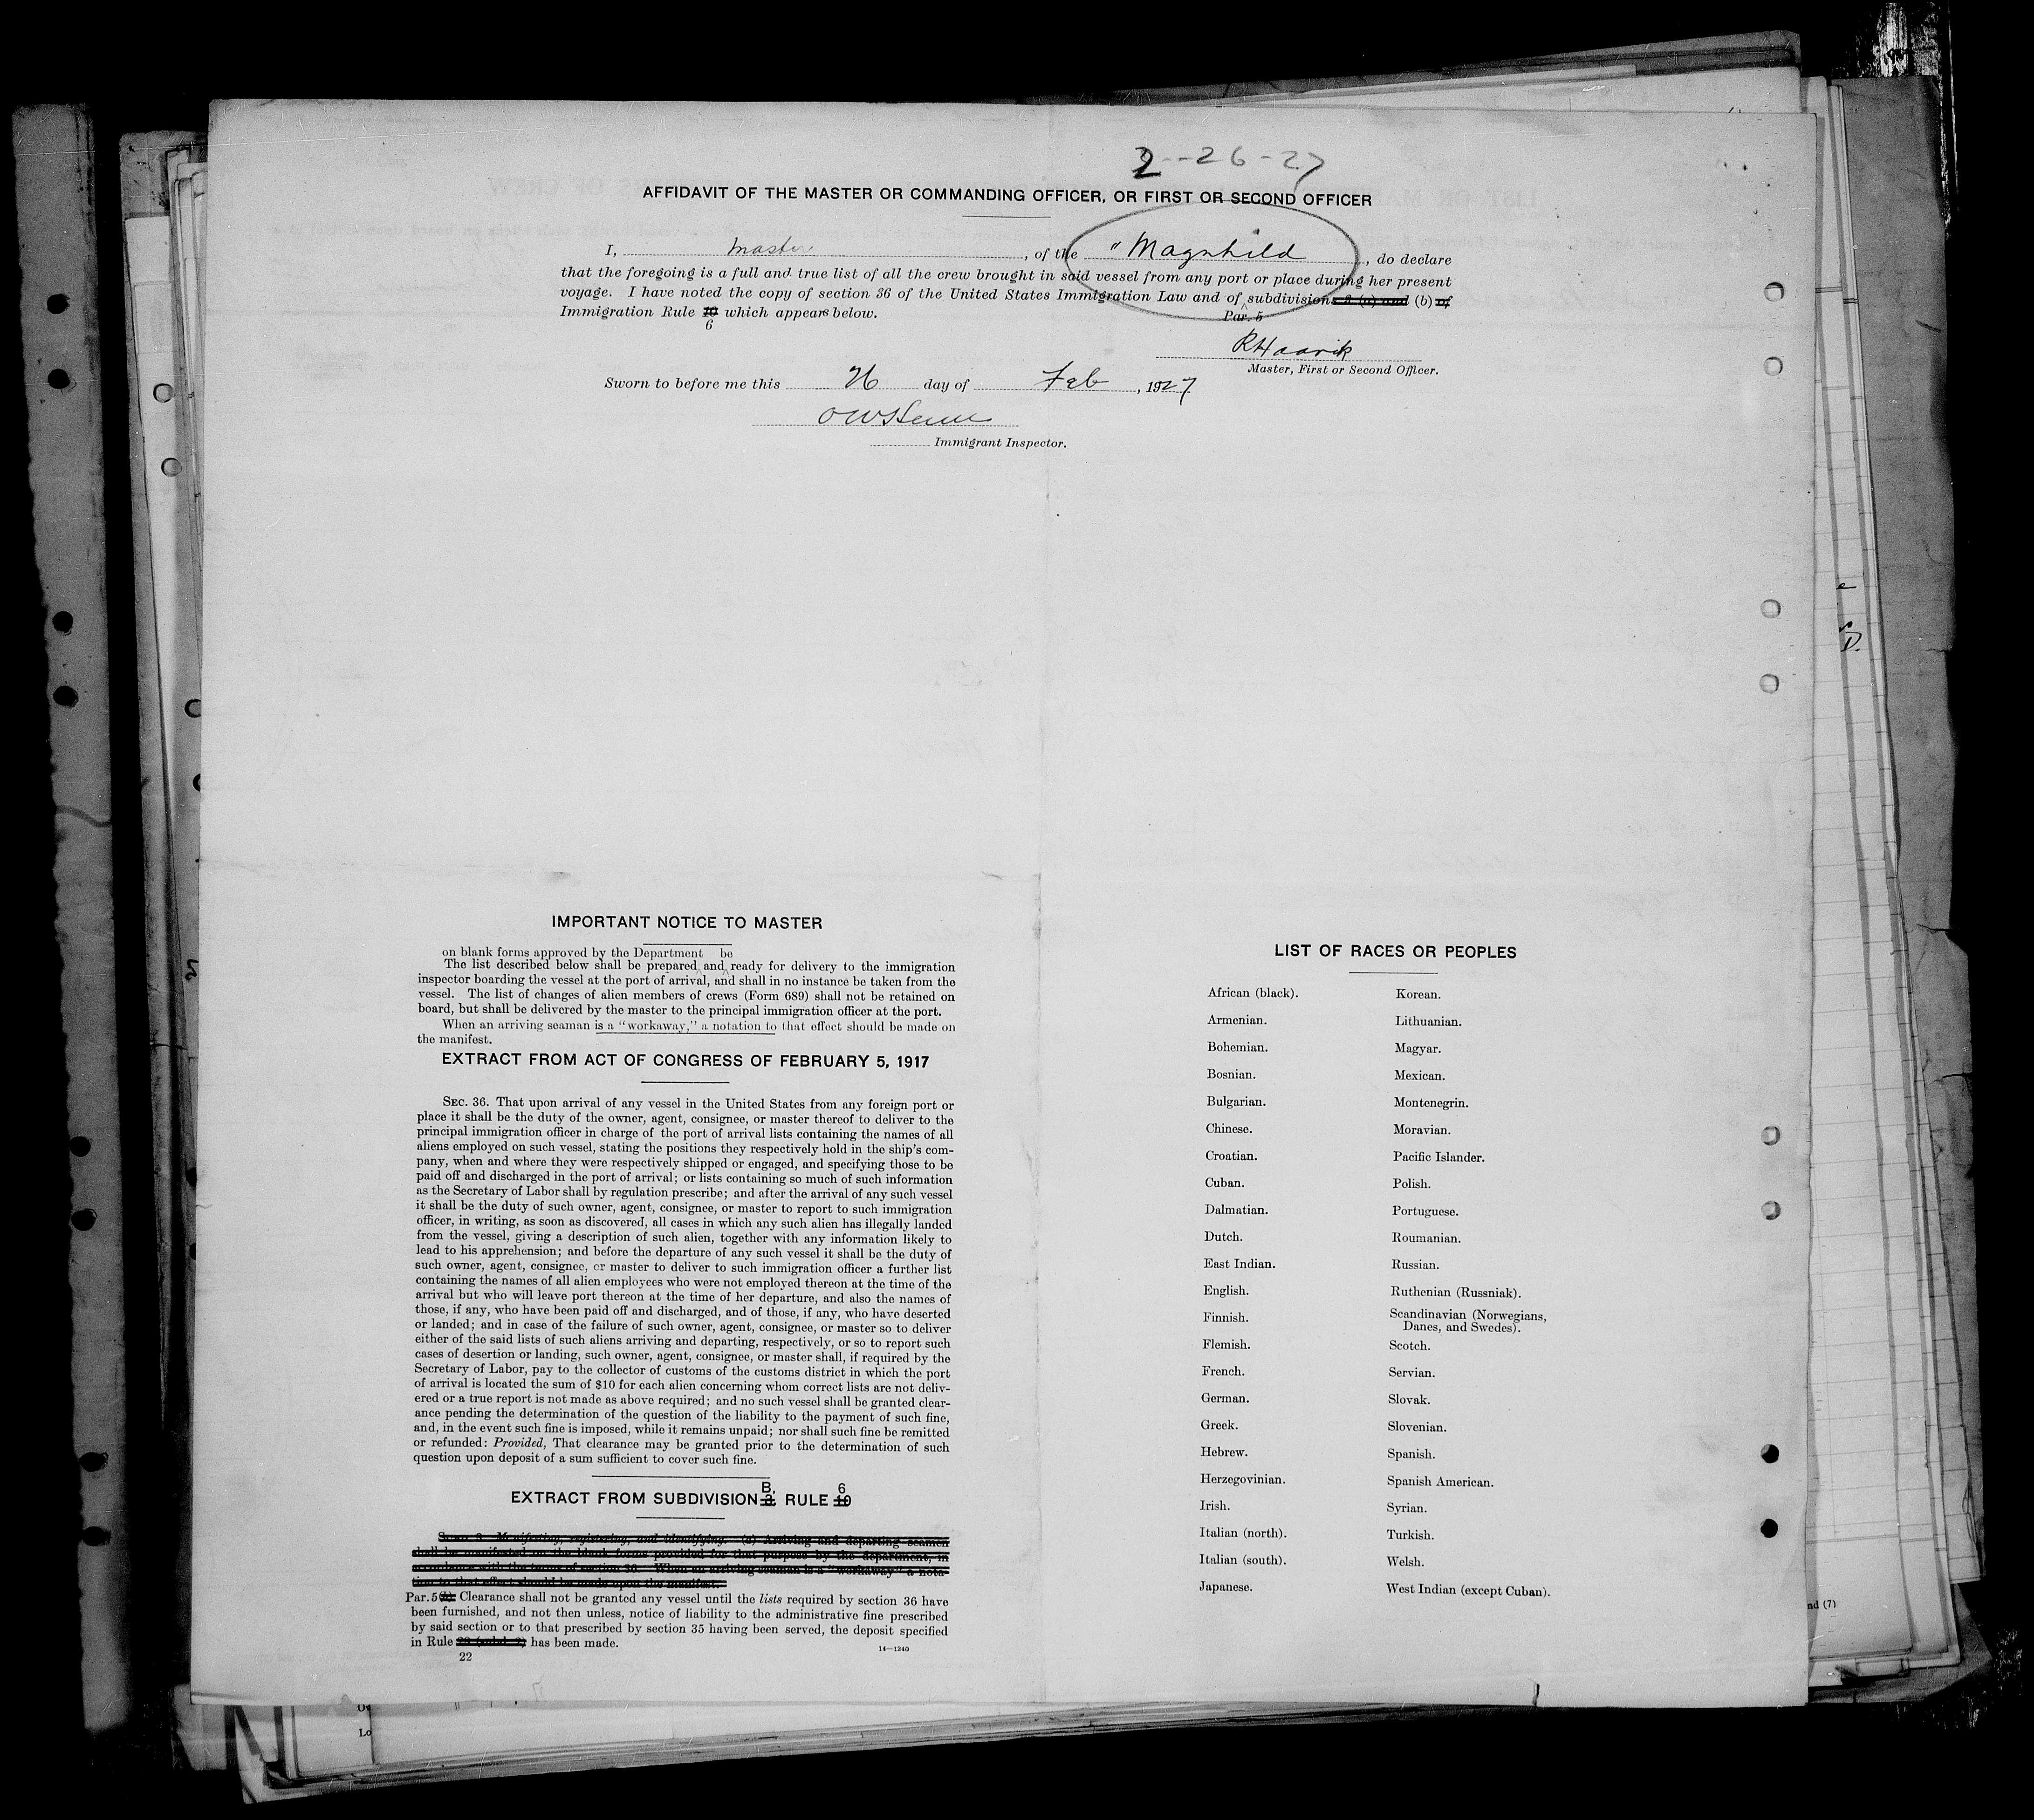 2--26-27
AFFIDAVIT OF THE MASTER OR COMMANDING OFFICER, OR FIRST OR SECOND OFFICER
I, Master, of the "Magnhild, do declare
that the foregoing is a full and true list of all the crew brought in said vessel from any port or place during her present
voyage. I have noted the copy of section 36 of the United States Immigration Law and of subdivisions 3 (a) and (b) of
Par. 5
Immigration Rule 10 which appears below.
6
RHaavik
Master, First or Second Officer.
Sworn to before me this 26 day of Feb, 1927
Immigrant Inspector.
IMPORTANT NOTICE TO MASTER
on blank forms approved by the Department be
The list described below shall be prepared and ready for delivery to the immigration
inspector boarding the vessel at the port of arrival, and shall in no instance be taken from the
vessel. The list of changes of alien members of crews (Form 689) shall not be retained on
board, but shall be delivered by the master to the principal immigration officer at the port.
When an arriving seaman is a "workaway," a notation to that effect should be made on
the manifest.
EXTRACT FROM ACT OF CONGRESS OF FEBRUARY 5, 1917
SEC. 36. That upon arrival of any vessel in the United States from any foreign port or
place it shall be the duty of the owner, agent, consignee, or master thereof to deliver to the
principal immigration officer in charge of the port of arrival lists containing the names of all
aliens employed on such vessel, stating the positions they respectively hold in the ship's com-
pany, when and where they were respectively shipped or engaged, and specifying those to be
paid off and discharged in the port of arrival; or lists containing so much of such information
as the Secretary of Labor shall by regulation prescribe; and after the arrival of any such vessel
it shall be the duty of such owner, agent, consignee, or master to report to such immigration
officer, in writing, as soon as discovered, all cases in which any such alien has illegally landed
from the vessel, giving a description of such alien, together with any information likely to
lead to his apprehension; and before the departure of any such vessel it shall be the duty of
such owner, agent, consignee, or master to deliver to such immigration officer a further list
containing the names of all alien employees who were not employed thereon at the time of the
arrival but who will leave port thereon at the time of her departure, and also the names of
those, if any, who have been paid off and discharged, and of those, if any, who have deserted
or landed; and in case of the failure of such owner, agent, consignee, or master so to deliver
either of the said lists of such aliens arriving and departing, respectively, or so to report such
cases of desertion or landing, such owner, agent, consignee, or master shall, if required by the
Secretary of Labor, pay to the collector of customs of the customs district in which the port
of arrival is located the sum of $10 for each alien concerning whom correct lists are not deliv-
ered or a true report is not made as above required; and no such vessel shall be granted clear-
ance pending the determination of the question of the liability to the payment of such fine,
and, in the event such fine is imposed, while it remains unpaid; nor shall such fine be remitted
or refunded: Provided, That clearance may be granted prior to the determination of such
question upon deposit of a sum sufficient to cover such fine.
B, 6
EXTRACT FROM SUBDIVISION 3, RULE 10
SUBD. 3. Manifesting, registering, and identifying. (a) Arriving and departing seamen
shall be manifested on the blank forms provided for that purpose by the department, in
accordance with the terms of section 36. When an arriving seaman is a "workaway" a nota-
tion to that effect should be made upon the manifest.
Par. 5 (b) Clearance shall not be granted any vessel until the lists required by section 36 have
been furnished, and not then unless, notice of liability to the administrative fine prescribed
by said section or to that prescribed by section 35 having been served, the deposit specified
in Rule 28 (subd. 2) has been made.
22
14—1240
LIST OF RACES OR PEOPLES
African (black).
Armenian.
Bohemian.
Bosnian.
Bulgarian.
Chinese.
Croatian.
Cuban.
Dalmatian.
Dutch.
East Indian.
English.
Finnish.
Flemish.
French.
German.
Greek.
Hebrew.
Herzegovinian.
Irish.
Italian (north).
Italian (south).
Japanese.
Korean.
Lithuanian.
Magyar.
Mexican.
Montenegrin.
Moravian.
Pacific Islander.
Polish.
Portuguese.
Roumanian.
Russian.
Ruthenian (Russniak).
Scandinavian (Norwegians,
Danes, and Swedes).
Scotch.
Servian.
Slovak.
Slovenian.
Spanish.
Spanish American.
Syrian.
Turkish.
Welsh.
West Indian (except Cuban).
nd (7)
Lo